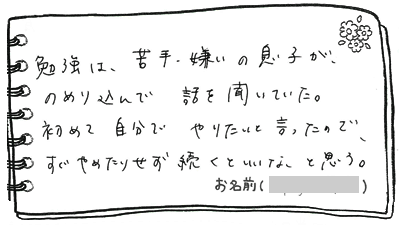 勉強は、苦手・嫌いの息子が、
のめり込んで 話を聞いていた。
初めて 自分で やりたいと言ったので、
すぐやめたりせず 続くといいな と思う。
お名前( )